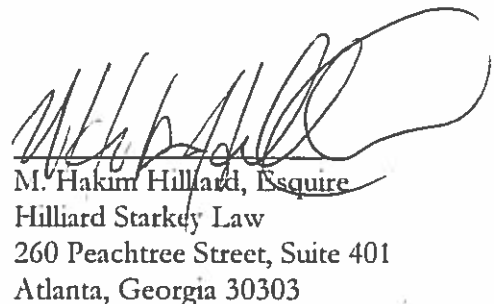 M. Hakim Hilliard, Esquire
Hilliard Starkey Law
260 Peachtree Street, Suite 401
Atlanta, Georgia 30303